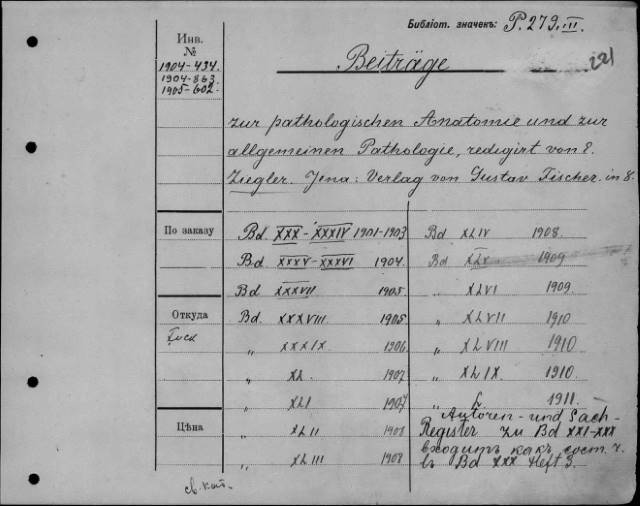 Библіот. значекъ: P. 279. III.
221
Инв.
№
1904-434.
1904-863
1905-602.
Beiträge
zur pathologischen Anatomie und zur
allgemeinen Pathologie, redigirt von E.
Ziegler. Jena: Verlag von Gustav Fischer. in 8.
По заказу
Bd XXX-XXXIV 1901-1903
Bd XXXV-XXXVI 1904.
Bd XXXVII 1905.
Откуда
Bd. XXXVIII. 1905
„ XXXIX. 1906
„ XL. 1907
„ XLI 1907
Цѣна
„ XLII 1908
„ XLIII 1908
Bd XLIV 1908.
Bd XLV 1909
„ XLVI 1909
„ XLVII 1910
„ XLVIII 1910
„ XLIX. 1910
„ L 1911.
Autoren- und Sach-
Register zu Bd XXI-XXX
входитъ какъ сост. ч.
въ Bd XXX Heft 3.
св. кат.